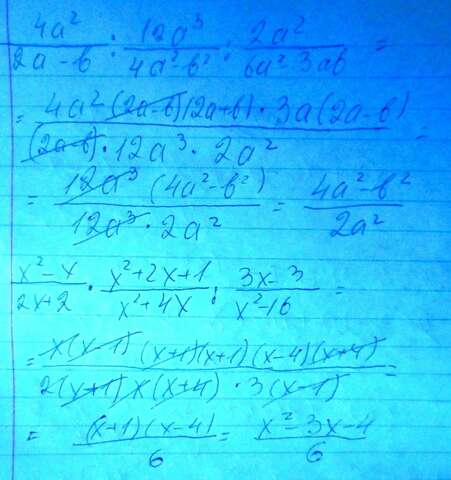 4a²/(2a-b) : 12a³/(4a²-b²) : 2a²/(6a²-3ab) =
= 4a²·(2a-b)(2a+b)·3a(2a-b)/((2a-b)·12a³·2a²) =
= 12a³(4a²-b²)/(12a³·2a²) = (4a²-b²)/(2a²)
(x²-x)/(2x+2) · (x²+2x+1)/(x²+4x) : (3x-3)/(x²-16) =
= x(x-1)(x+1)(x+1)(x-4)(x+4)/(2(x+1)x(x+4)·3(x-1)) =
= (x+1)(x-4)/6 = (x²-3x-4)/6